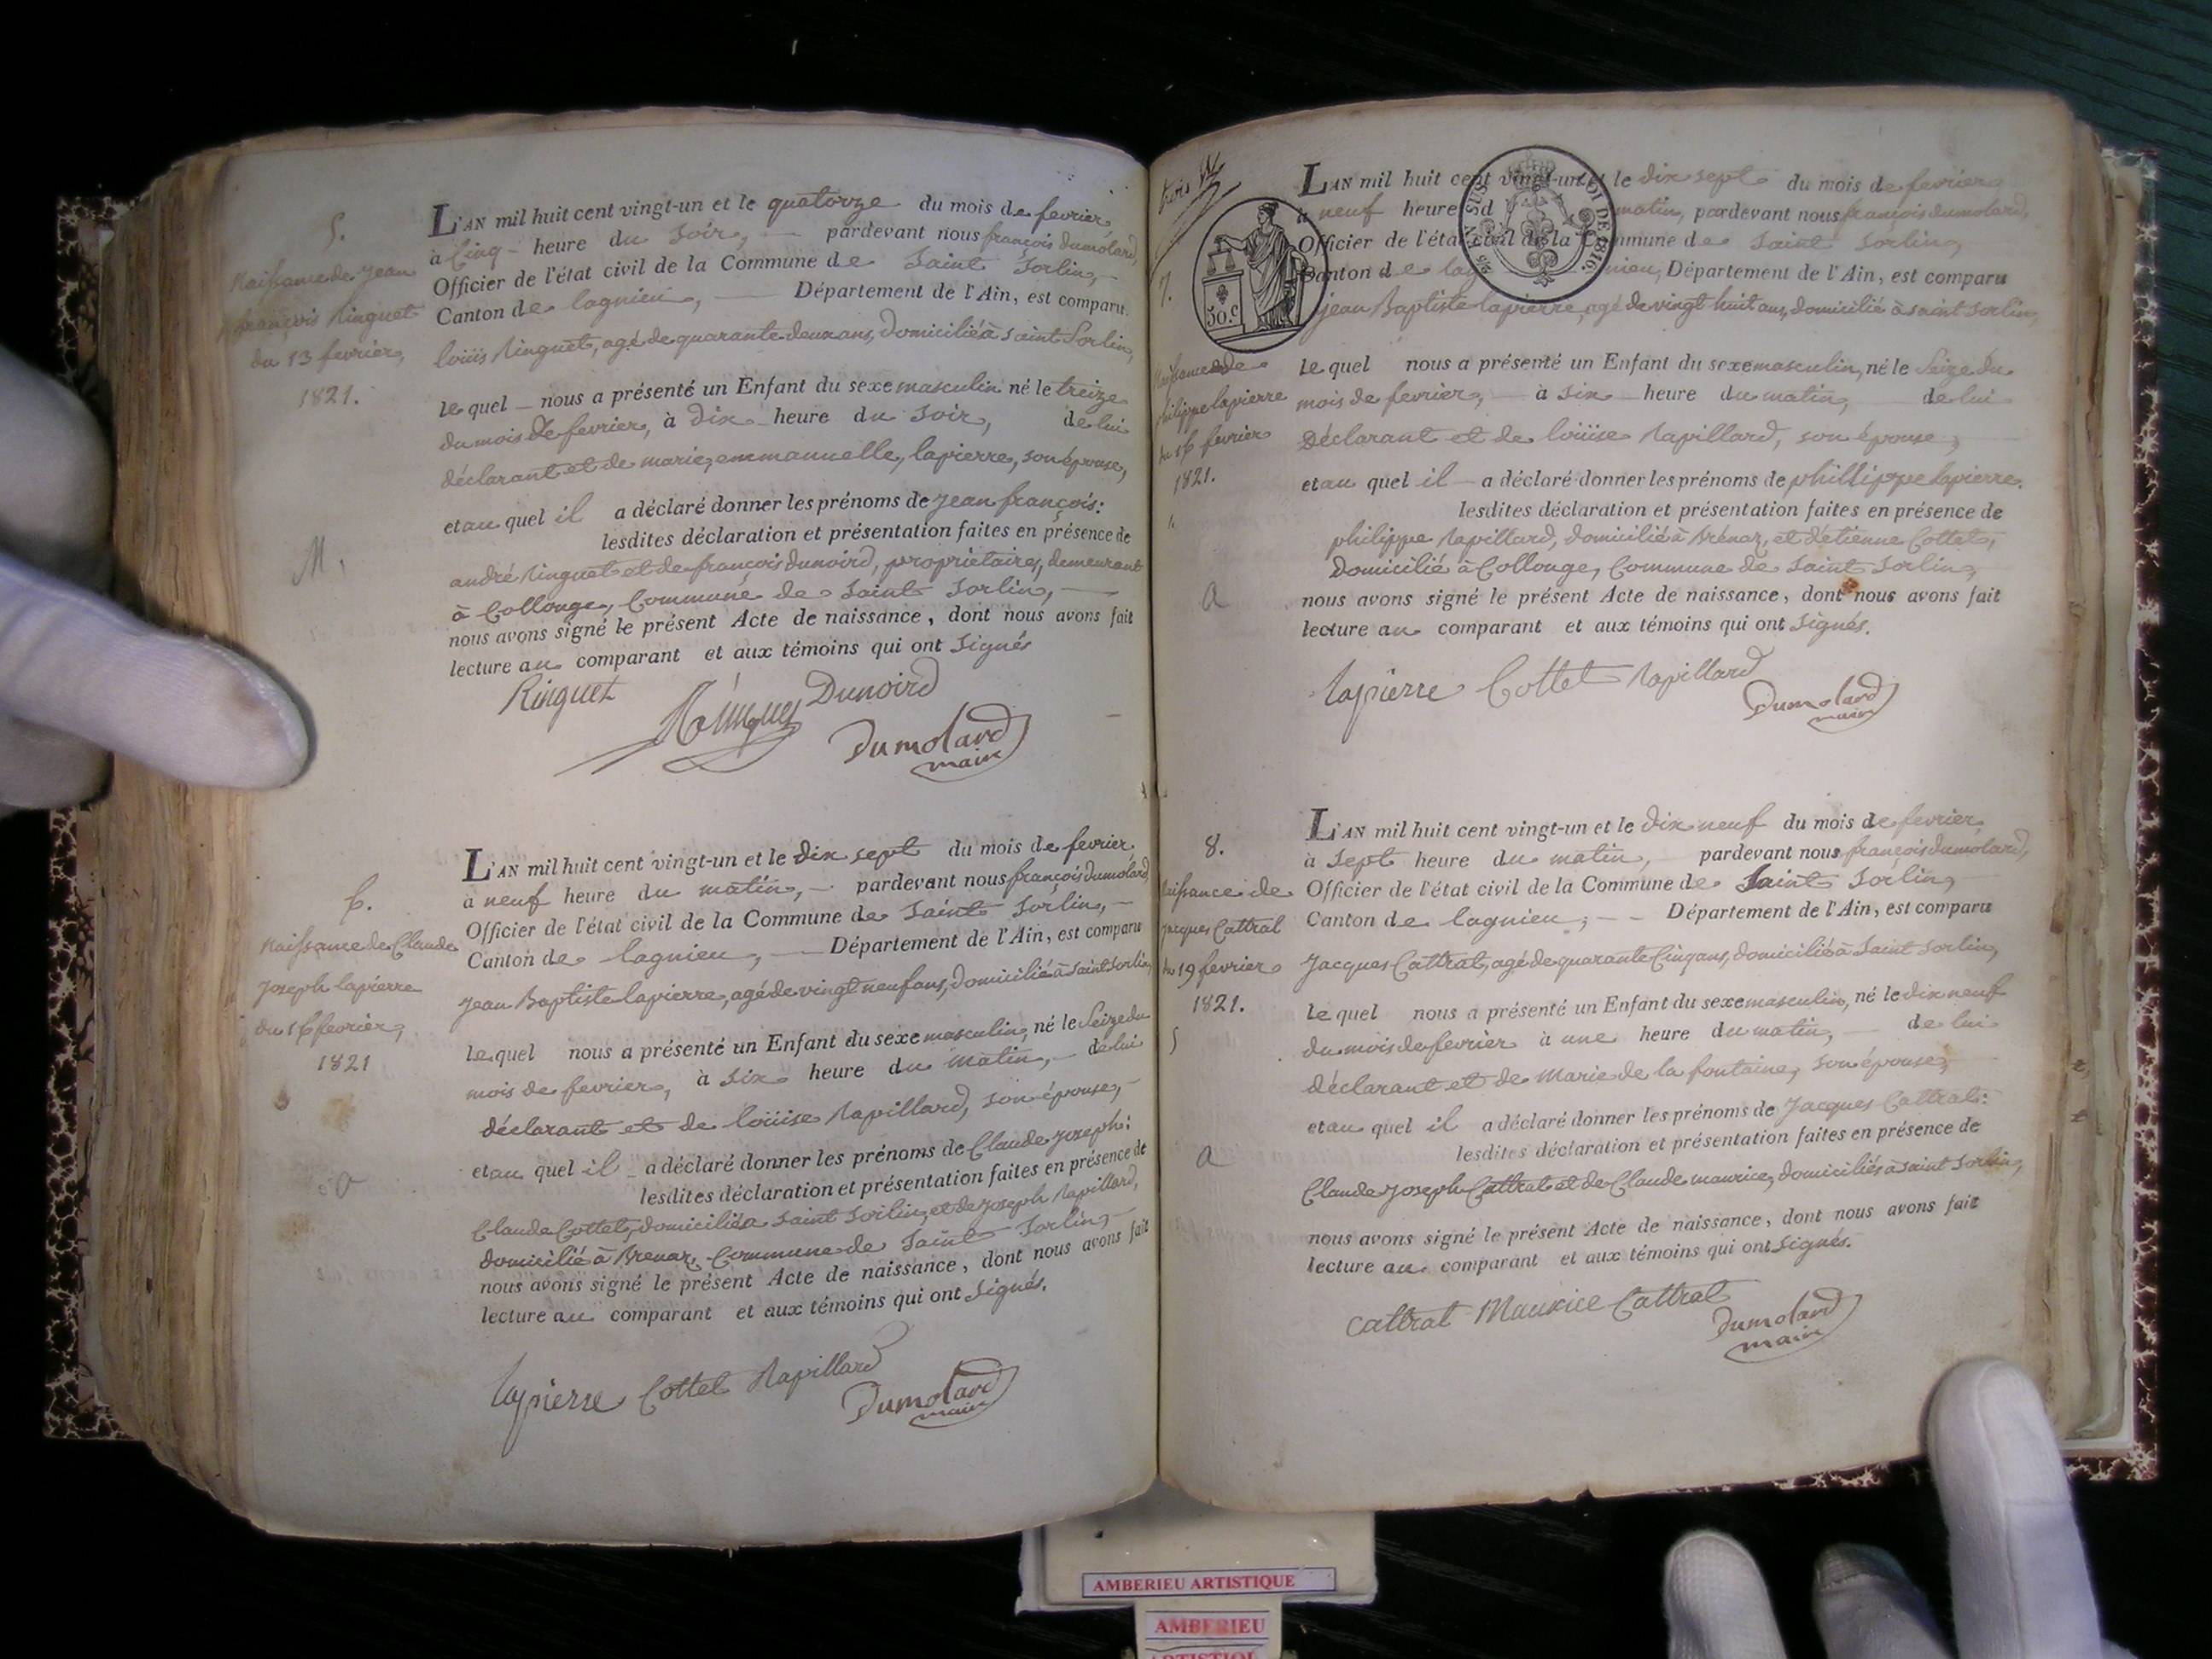 5.
Naissance de jean
françois Ringuet
du 13 fevrier,
1821.
M.
L'AN mil huit cent vingt-un et le quatorze du mois de fevrier,
à Cinq heure du soir, pardevant nous françois dumolard,
Officier de l'état civil de la Commune de Saint Sorlin,
Canton de lagnieu, Département de l'Ain, est comparu
loüis Ringuet, agé de quarante deux ans, domicilié à saint Sorlin,
le quel nous a présenté un Enfant du sexe masculin né le treize
du mois de fevrier, à dix heure du soir, de lui
déclarant et de marie, emmanuelle, lapierre, son épouse,
et au quel il a déclaré donner les prénoms de jean françois:
lesdites déclaration et présentation faites en présence de
andré Ringuet et de françois dunoird, propriétaires, demeurant
à Collonge, Commune de Saint Sorlin,
nous avons signé le présent Acte de naissance, dont nous avons fait
lecture au comparant et aux témoins qui ont Signés
Ringuet Dunoird
Dumolard
maire
6.
Naissance de Claude
joseph lapierre
du 16 fevrier,
1821
L'AN mil huit cent vingt-un et le dix sept du mois de fevrier
à neuf heure du matin, pardevant nous françois dumolard
Officier de l'état civil de la Commune de Saint Sorlin,
Canton de lagnieu, Département de l'Ain, est comparu
jean Baptiste lapierre, agé de vingt neuf ans, domicilié à saint sorlin,
le quel nous a présenté un Enfant du sexe masculin, né le Seize du
mois de fevrier, à six heure du matin, de lui
déclarant et de loüise Rapillard, son épouse,
et au quel il a déclaré donner les prénoms de Claude joseph:
lesdites déclaration et présentation faites en présence de
Claude Cottet, domicilié a Saint Sorlin, et de joseph Rapillard,
domicilié à Brenaz, Commune de Saint Sorlin,
nous avons signé le présent Acte de naissance, dont nous avons fait
lecture au comparant et aux témoins qui ont Signés.
lapierre Cottet Rapillard
Dumolard
maire
trois
50.c
EN SUS
LOI DE 1816.
7.
Naissance de
philippe lapierre
du 16 fevrier
1821.
a
L'AN mil huit cent vingt-un et le dix sept du mois de fevrier
à neuf heure d matin, pardevant nous françois dumolard,
Officier de l'état civil de la Commune de Saint Sorlin,
Canton de lagnieu, Département de l'Ain, est comparu
jean Baptiste lapierre, agé de vingt huit ans, domicilié à saint sorlin,
le quel nous a présenté un Enfant du sexe masculin, né le Seize du
mois de fevrier, à six heure du matin, de lui
Déclarant et de loüise Rapillard, son épouse,
et au quel il a déclaré donner les prénoms de phillippe lapierre.
lesdites déclaration et présentation faites en présence de
philippe Rapillard, domicilié à Brénaz, et d'étienne Cottet,
Domicilié à Collonge, Commune de Saint Sorlin,
nous avons signé le présent Acte de naissance, dont nous avons fait
lecture au comparant et aux témoins qui ont signés.
lapierre Cottet Rapillard
Dumolard
maire
8.
Naissance de
jacques Cattrat
du 19 fevrier
1821.
5
a
L'AN mil huit cent vingt-un et le dix neuf du mois de fevrier
à Sept heure du matin, pardevant nous françois dumolard,
Officier de l'état civil de la Commune de Saint Sorlin,
Canton de lagnieu, Département de l'Ain, est comparu
Jacques Cattrat, agé de quarante Cinq ans, domicilié à Saint Sorlin,
le quel nous a présenté un Enfant du sexe masculin, né le dix neuf
du mois de fevrier à une heure du matin, de lui
déclarant et de Marie de la fontaine, son épouse,
et au quel il a déclaré donner les prénoms de Jacques Cattrat:
lesdites déclaration et présentation faites en présence de
Claude joseph Cattrat et de Claude maurice, domiciliés à saint Sorlin,
nous avons signé le présent Acte de naissance, dont nous avons fait
lecture au comparant et aux témoins qui ont Signés.
Cattrat Maurice Cattrat
Dumolard
maire
AMBERIEU ARTISTIQUE
AMBERIEU
ARTISTIQUE